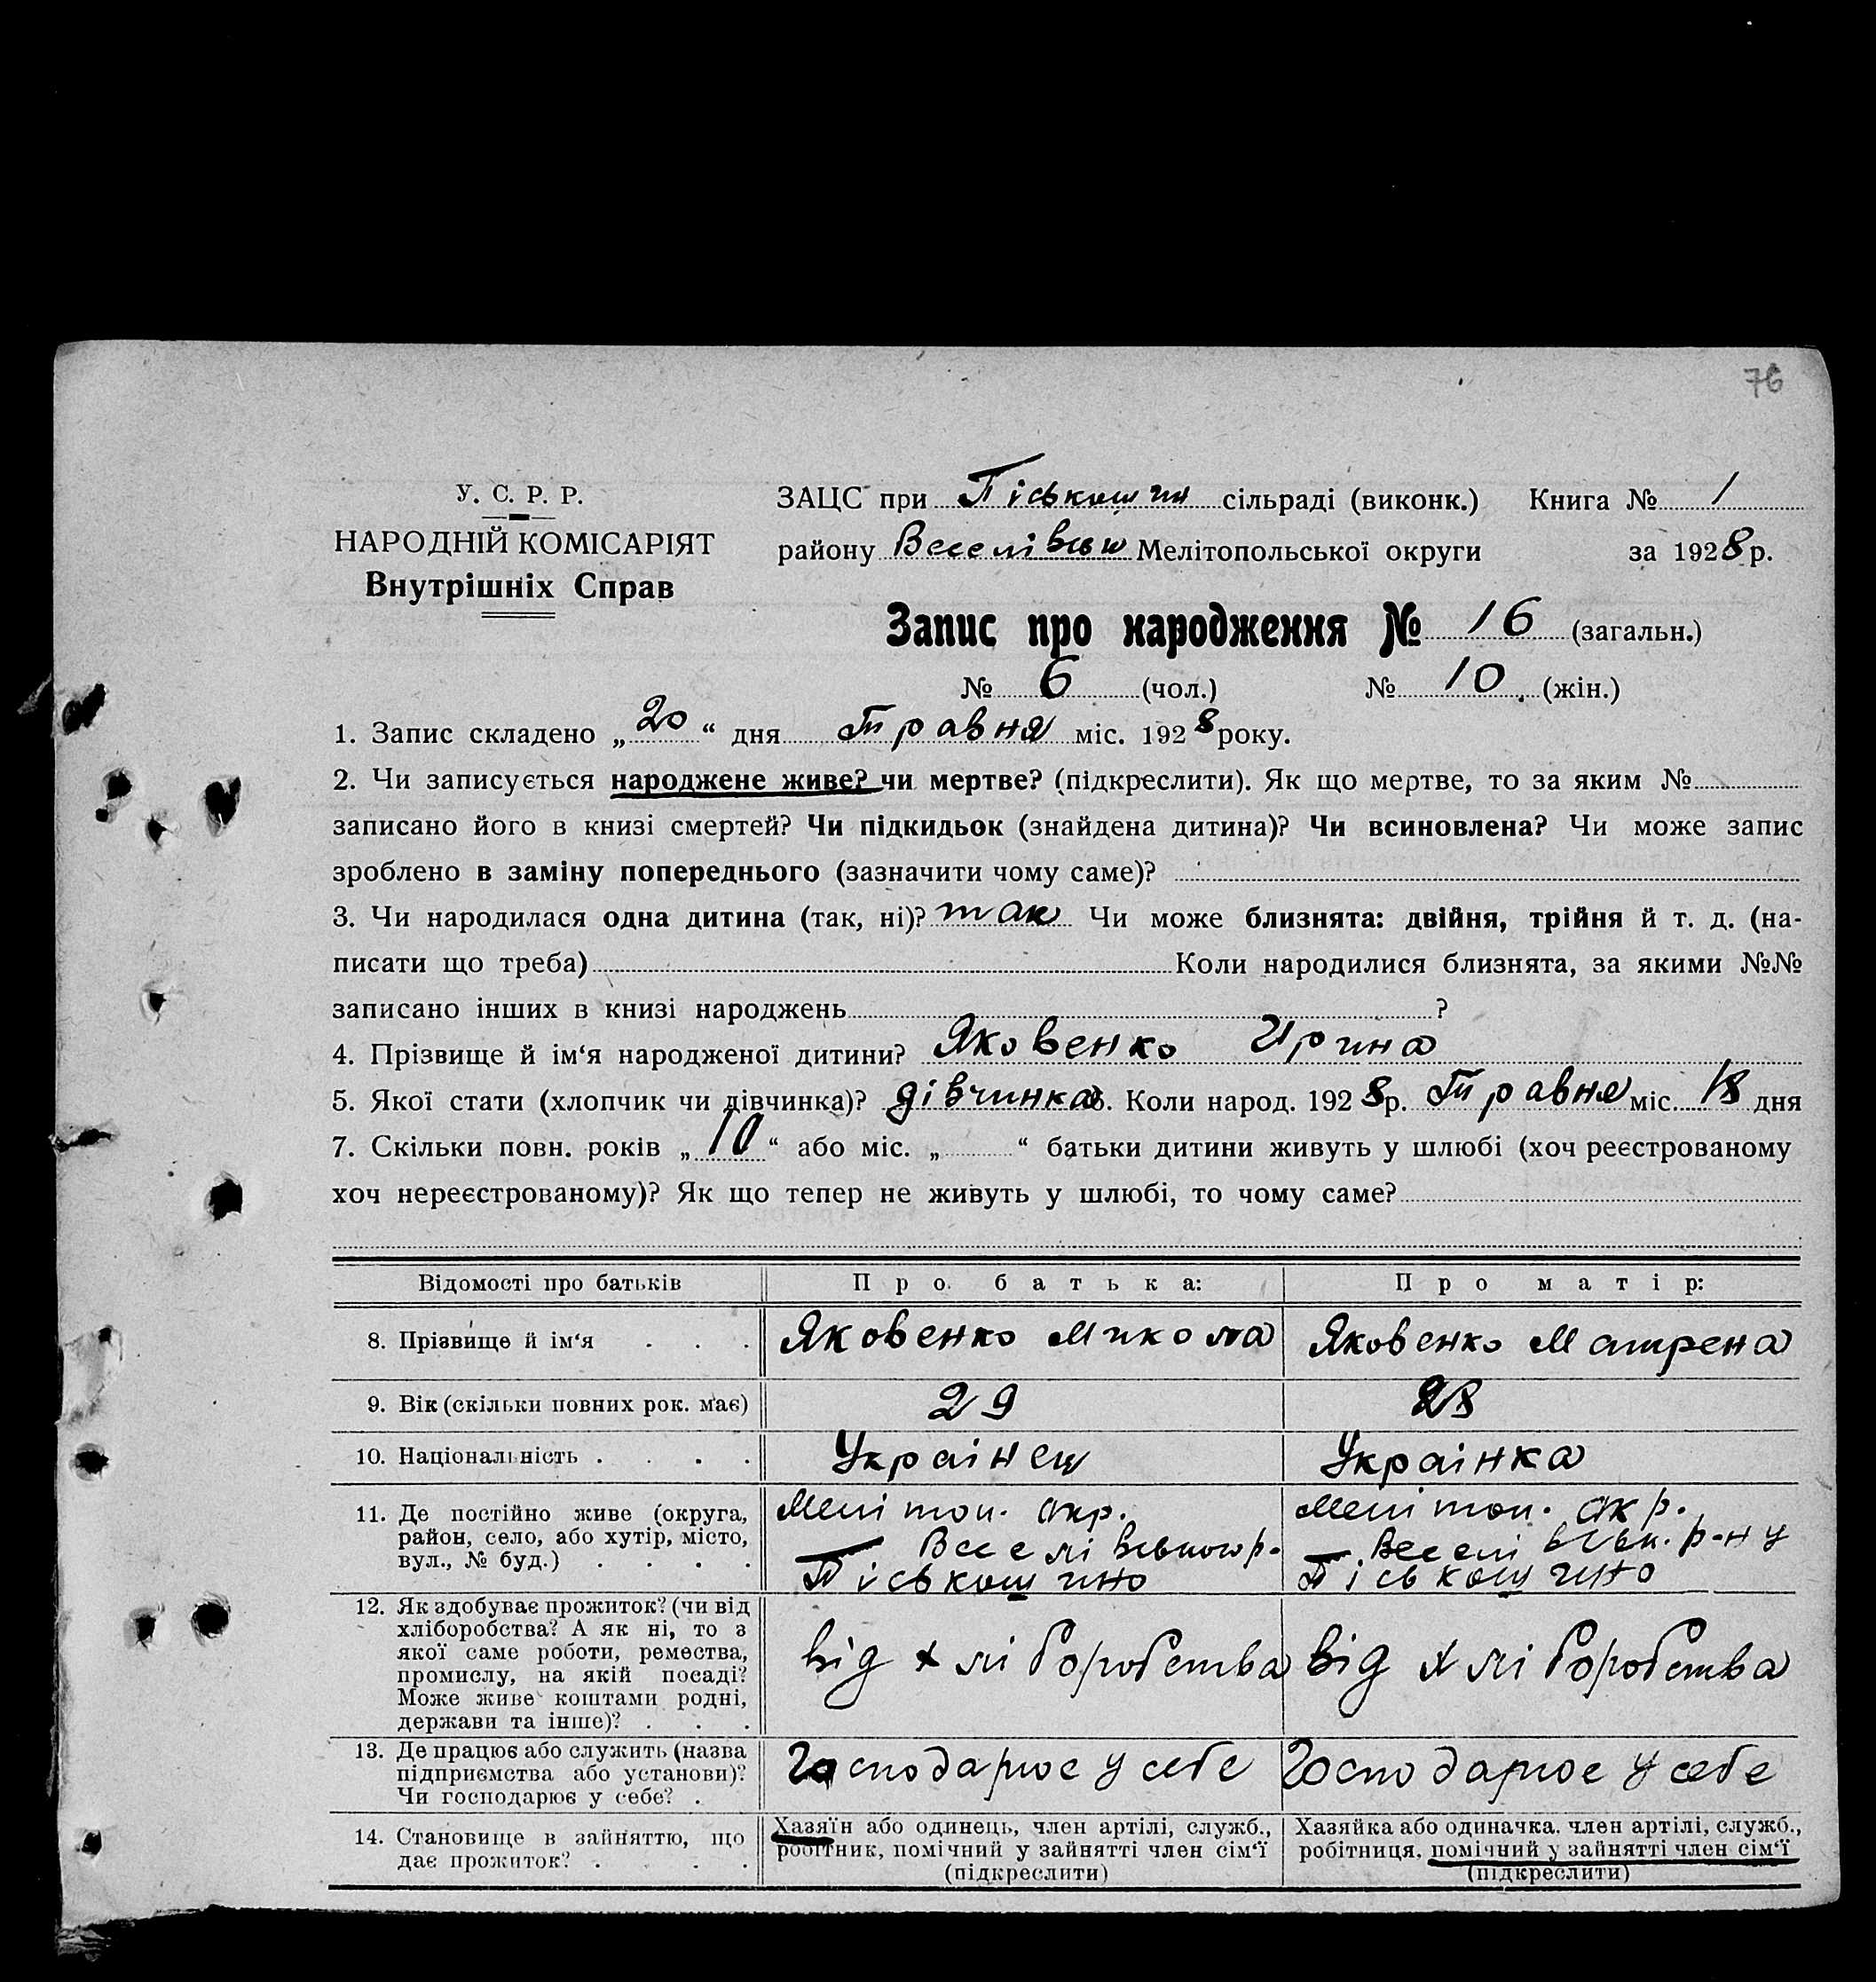 76
У. С. Р. Р.
НАРОДНІЙ КОМІСАРІЯТ
Внутрішніх Справ
ЗАЦС при Піськошин сільраді (виконк.) Книга № 1
району Веселівськ Мелітопольської округи за 1928 р.
Запис про народження № 16 (загальн.)
№ 6 (чол.) № 10 (жін.)
1. Запис складено „20“ дня Травня міс. 1928 року.
2. Чи записується народжене живе? чи мертве? (підкреслити). Як що мертве, то за яким №
записано його в книзі смертей? Чи підкидьок (знайдена дитина)? Чи всиновлена? Чи може запис
зроблено в заміну попереднього (зазначити чому саме)?
3. Чи народилася одна дитина (так, ні)? так Чи може близнята: двійня, трійня й т. д. (на-
писати що треба) Коли народилися близнята, за якими №№
записано інших в книзі народжень ?
4. Прізвище й ім‘я народженої дитини? Яковенко Ирина
5. Якої стати (хлопчик чи дівчинка)? дівчинка 6. Коли народ. 1928 р. Травня міс. 18 дня
7. Скільки повн. років „10“ або міс. „ “ батьки дитини живуть у шлюбі (хоч реєстрованому
хоч нереєстрованому)? Як що тепер не живуть у шлюбі, то чому саме?
Відомості про батьків Про батька: Про матір:
8. Прізвище й ім‘я . . . Яковенко Микола Яковенко Матрена
9. Вік (скільки повних рок. має) 29 28
10. Національність . . . . Українец Українка
11. Де постійно живе (округа,
район, село, або хутір, місто,
вул., № буд.) . . . .
Мелітоп. окр.
Веселівськог р.
Піськошино
Мелітоп. окр.
Веселівськ. р-ну
Піськошино
12. Як здобуває прожиток? (чи від
хліборобства? А як ні, то з
якої саме роботи, ремества,
промислу, на якій посаді?
Може живе коштами родні,
держави та інше)? . . .
від хліборобства
від хліборобства
13. Де працює або служить (назва
підприємства або установи)?
Чи господарює у себе? .
Господарює у себе
Господарює у себе
14. Становище в зайняттю, що
дає прожиток? . . . .
Хазяїн або одинець, член артілі, служб.,
робітник, помічний у зайнятті член сім‘ї
(підкреслити)
Хазяйка або одиначка. член артілі, служб.,
робітниця, помічний у зайнятті член сім‘ї
(підкреслити)